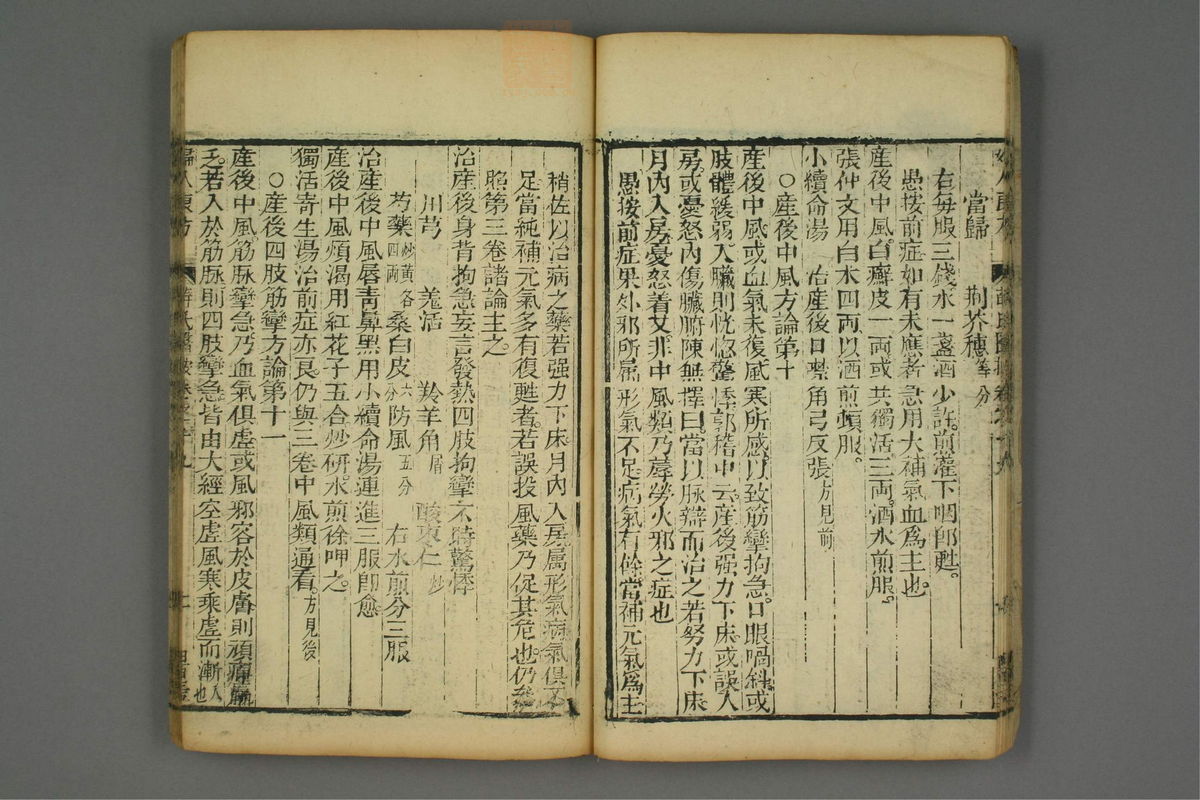 當歸 荆芥穗等分
右每服三錢水一盞酒少許煎灌下咽即甦。
愚按前症如有未應者急用大補氣血爲主也。
產後中風。白癬皮一兩或共獨活三兩。酒水煎服。
張仲文用白水四両以酒煎頓服。
小續命湯 治產後口噤角弓反張方見前
○產後中風方論第十
產後中風或血氣未復風寒所感以致筋攣拘急。口眼喎斜或
肢體緩弱。入臟則恍惚驚悸郭稽中云產後强力下床或誤入
房。或憂怒內傷臟腑陳無擇曰。當以脉辯而治之若努力下床
月內入房憂怒着艾非中風類乃蓐勞火邪之症也
愚按前症果外邪所屬形氣不足病氣有餘當補元氣爲主
稍佐以治病之藥若强力下床月內入房属形氣病氣俱不
足當純補元氣多有復甦者。若誤投風藥乃促其危也。仍
照第三卷諸論主之。
治產後身背拘急妄言發熱四肢拘攣不時驚悸
川芎 羗活 羚羊角屑 酸棗仁炒
芍藥炒黄各四兩 桑白皮六分 防風五分 右水煎分三服
治產後中風唇青鼻黑用小續命湯連進三服即愈
產後中風煩渴用紅花子五合炒研。水煎徐呷之。
獨活寄生湯治前症亦良仍與三卷中風類通看。方見後
○產後四肢筋攣方論第十一
產後中風。筋脉攣急乃血氣俱虛或風邪客於皮膚則頑癢
乏。若入於筋脉則四肢攣急皆由大經空虛風寒乘虛而漸入也